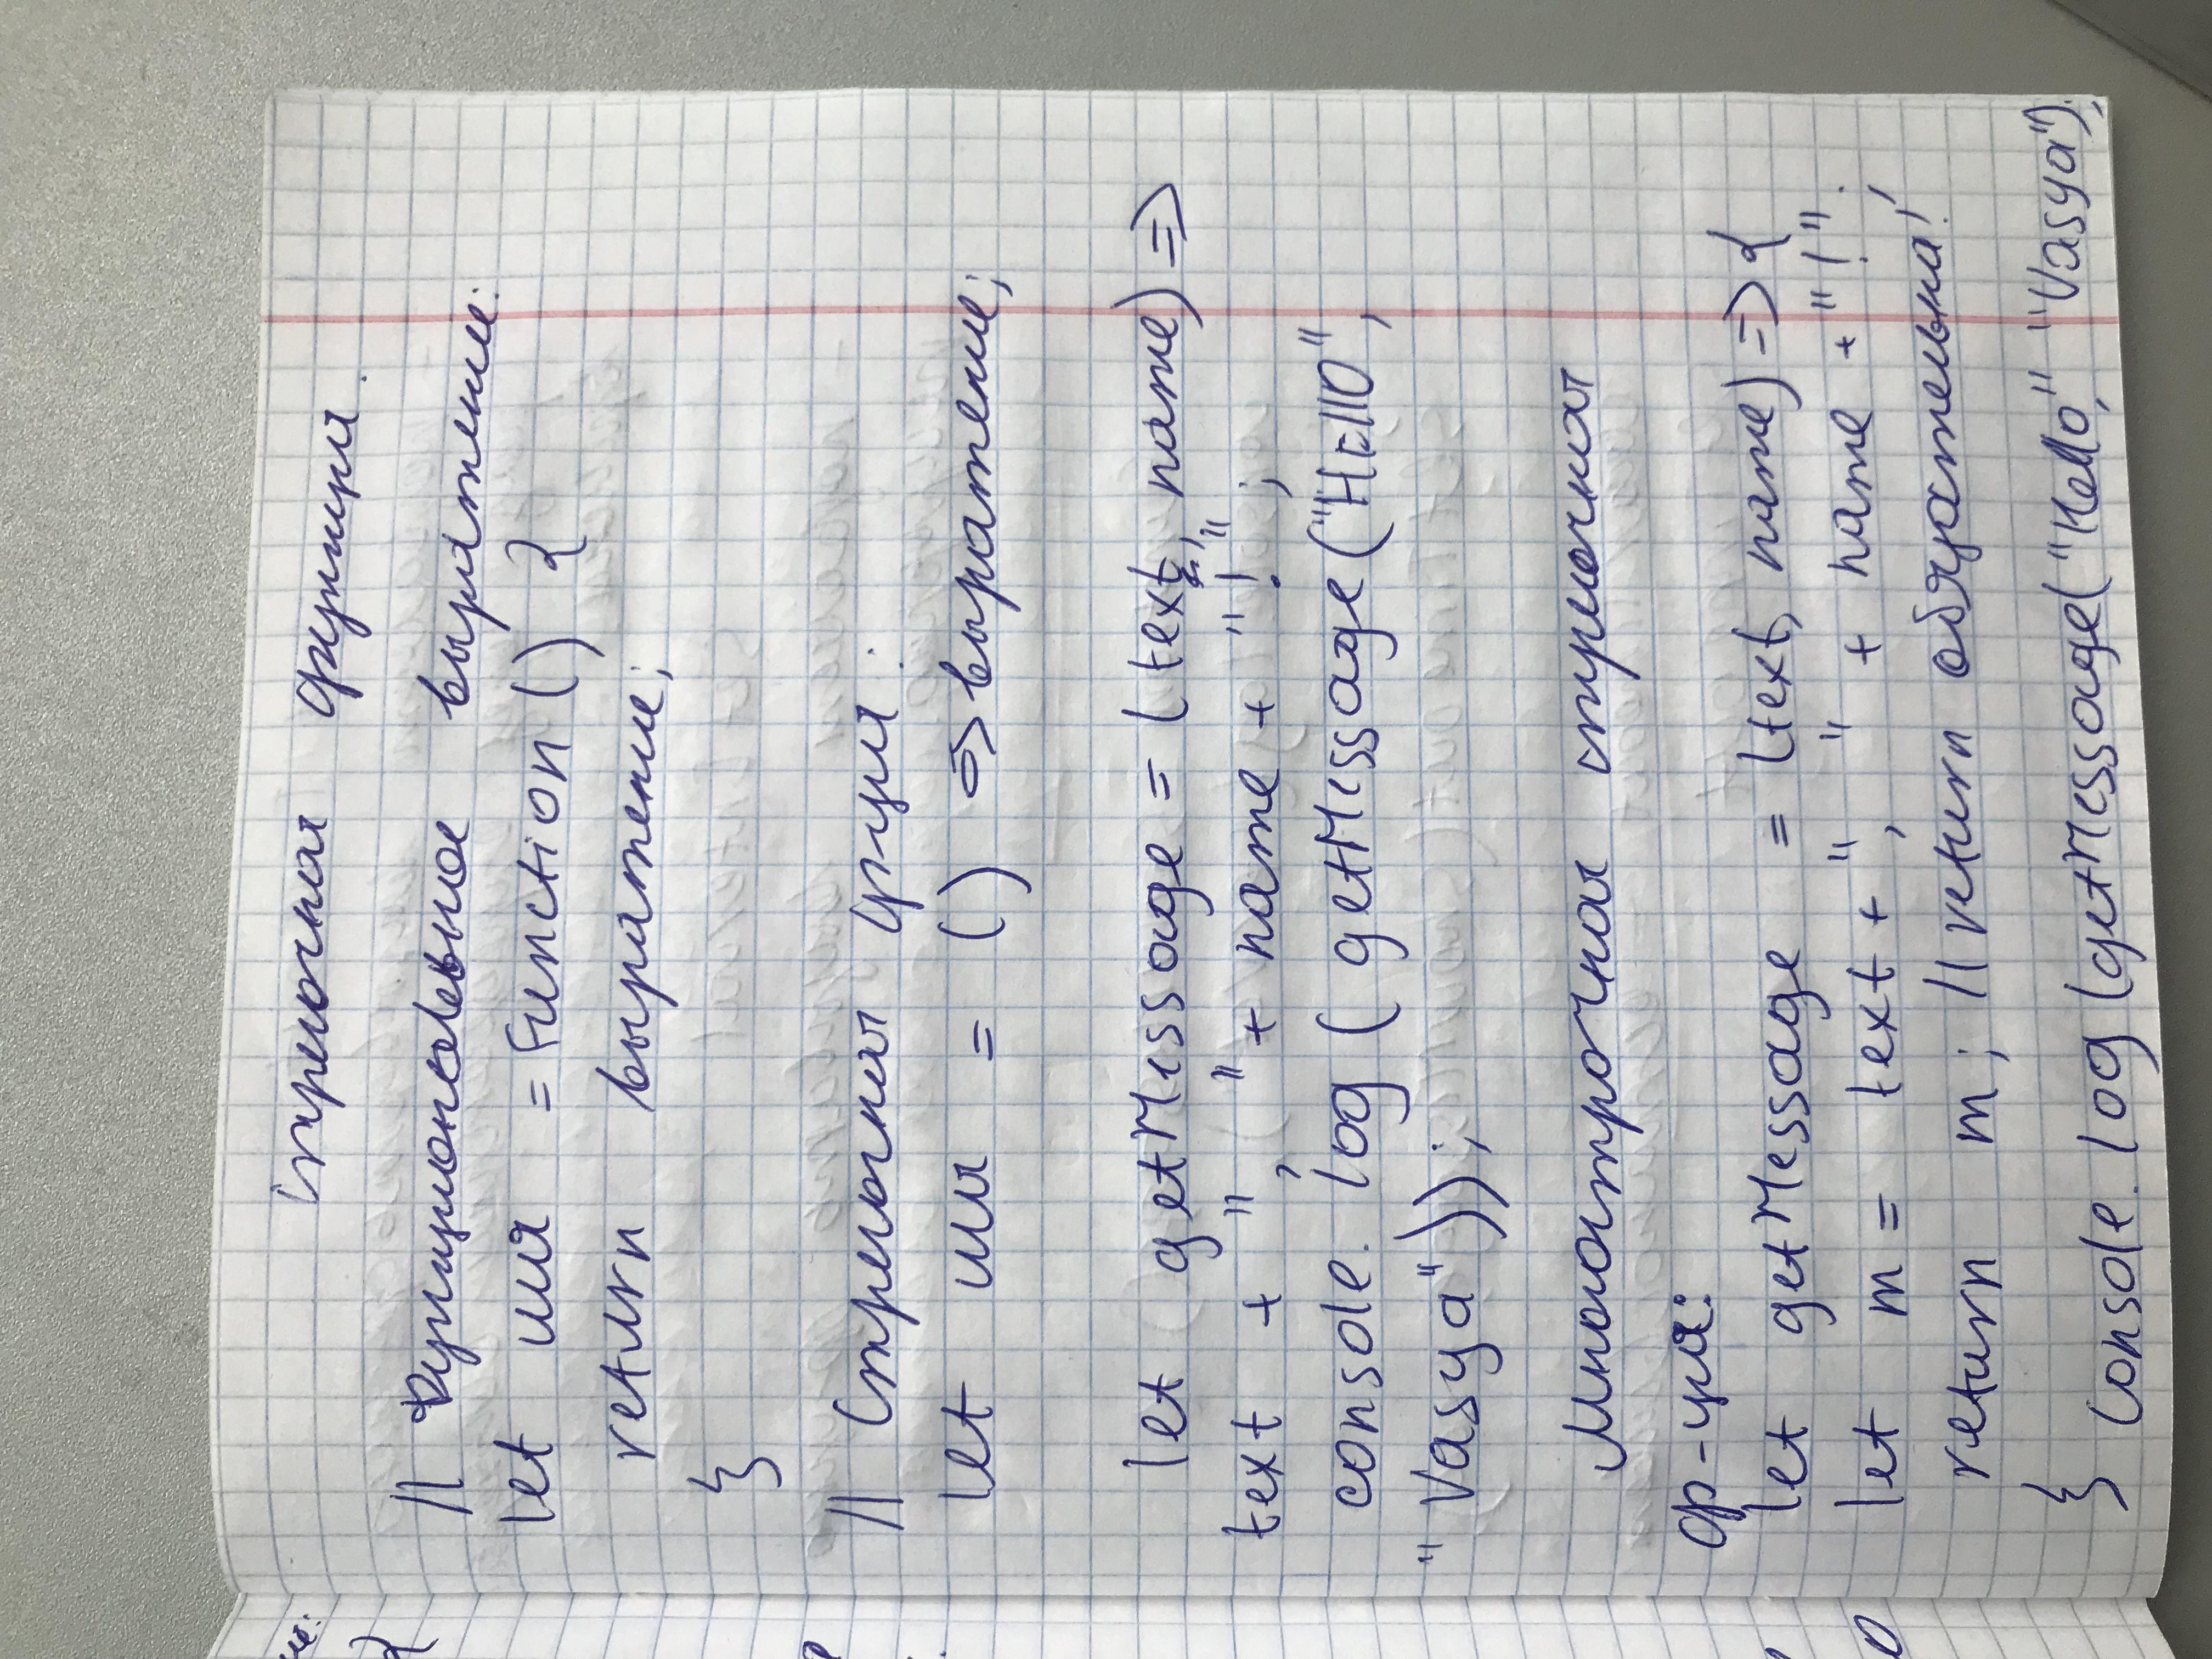 Стрелочная функция.
// Функциональное выражение:
let имя = Function () {
return выражение;
}
// Стрелочная ф-ция:
let имя = () => выражение;
let getMessage = (text, name) =>
text + ", " + name + "!";
console.log ( getMessage ("Hello",
"Vasya"));
Многострочная стрелочная
ф-ция:
let getMessage = (text, name) => {
let m = text + ", " + name + "!";
return m; // return обязательна!
} console.log (getMessage("Hello," "Vasya");